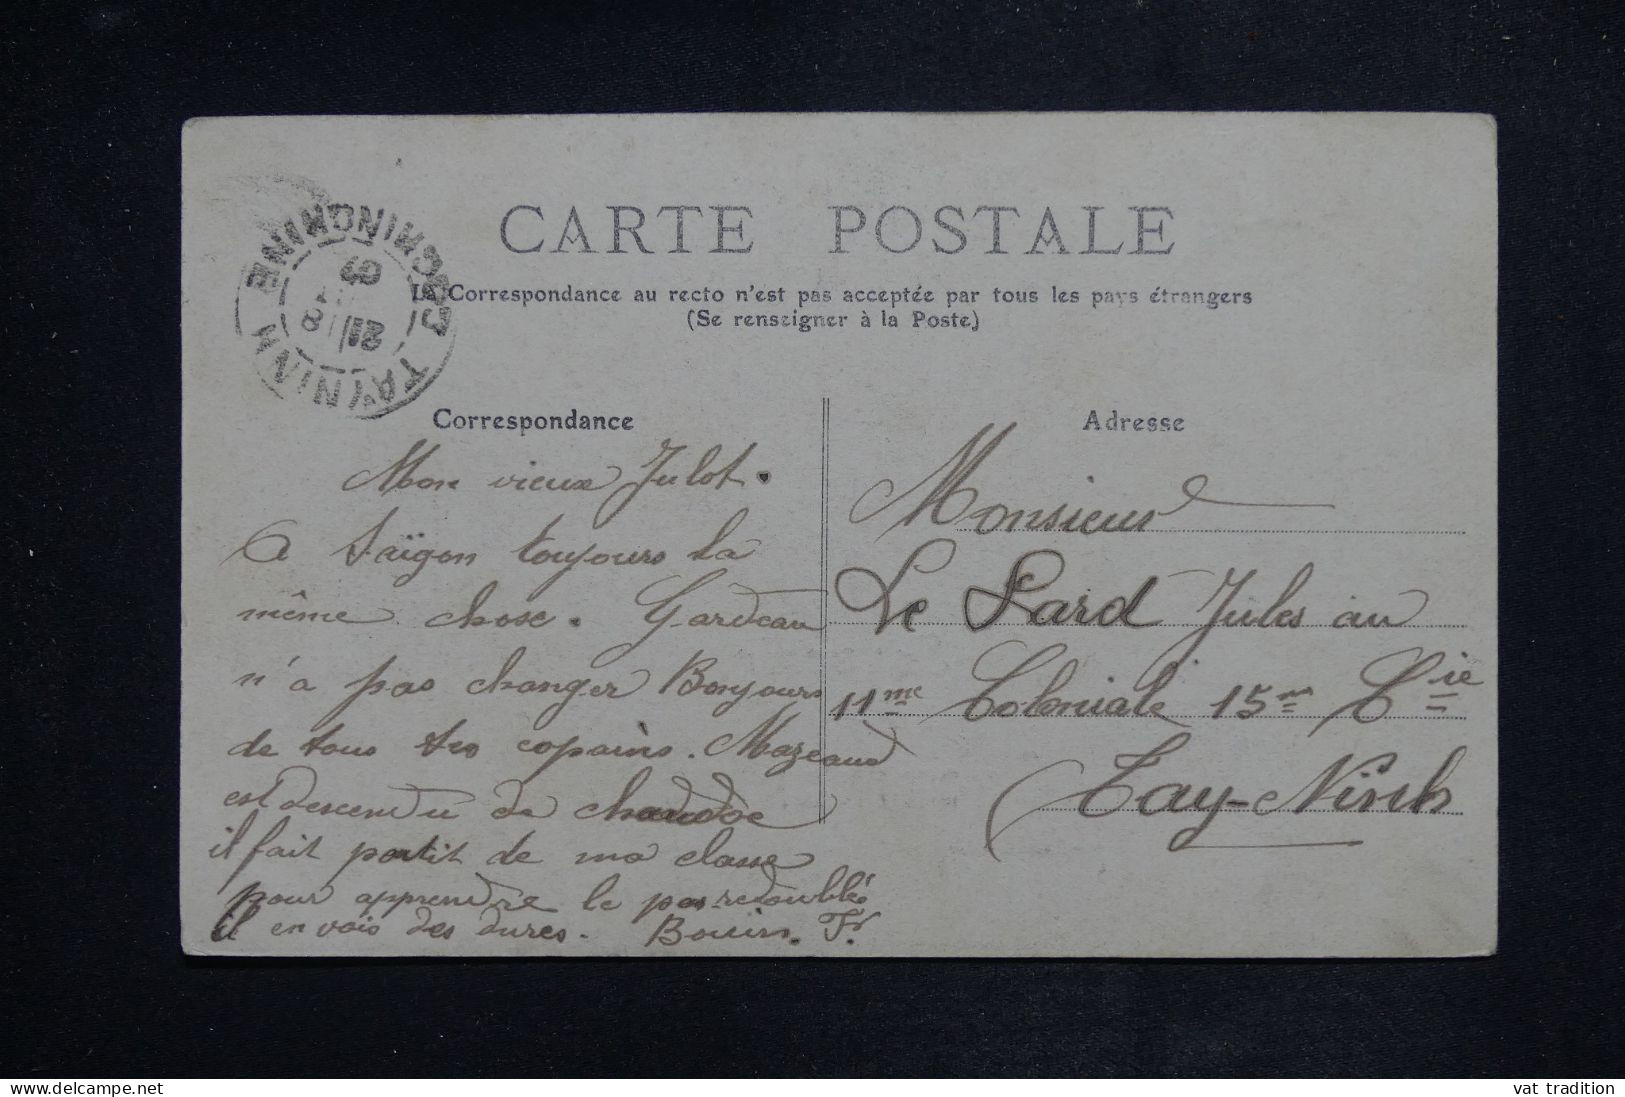 CARTE POSTALE
La Correspondance au recto n'est pas acceptée par tous les pays étrangers
(Se renseigner à la Poste)
TAYNINH COCHINCHINE
9
21
8
Correspondance
Mon vieux Julot.
A Saïgon toujours la
même chose. Gardeau
n'a pas changer Bonjours
de tous tes copains. Mazeaud
est descendu de
il fait partit de ma classe
pour apprendre le pas redoublé
il en vois des dures. Bouin. Fr.
Adresse
Monsieur
Le Lard Jules au
11me Coloniale 15me Cie
Tay-Ninh
www.delcampe.net
vat_tradition